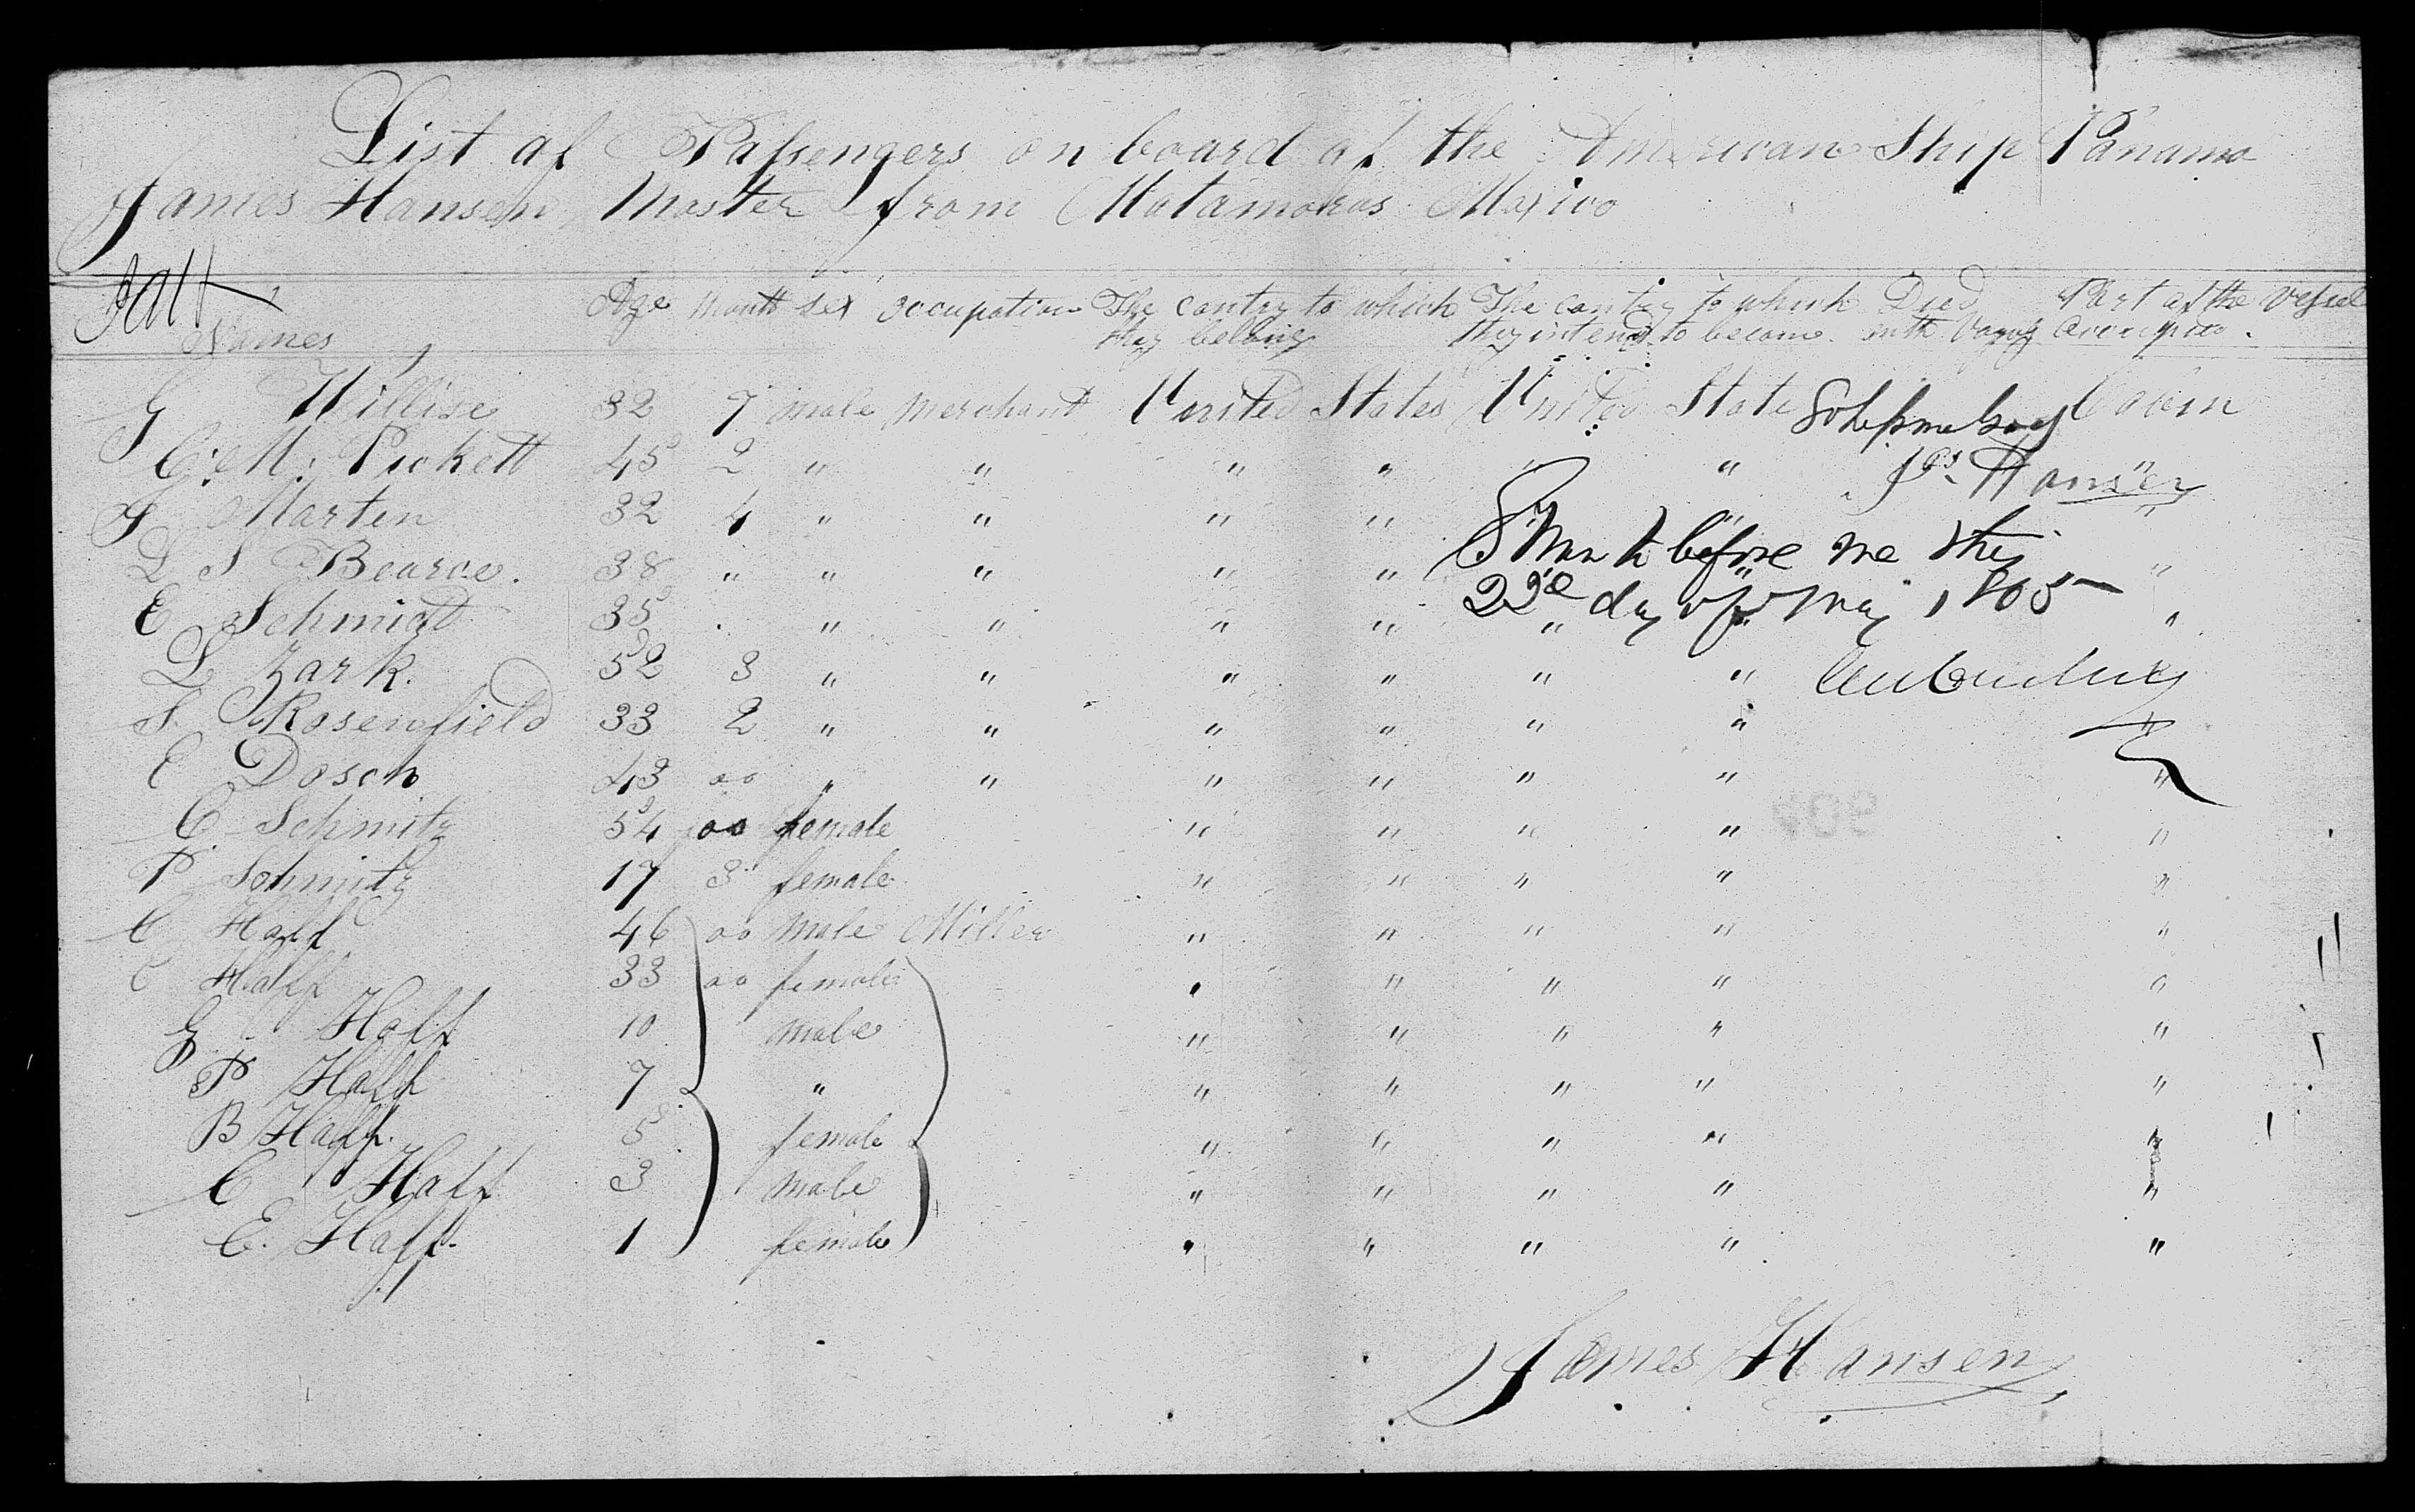 List of Passengers on board of the American Ship Panama
James Hansen Master from Matamoros Mexico
Names Age Month sex occupation The contry to which they belong The contry to which they intend to become Died on the Voyag Part of the vessel occupied
G Willise 32 7 male merchant United States United State Cabin
C. M. Pickett 45 2 " " " " " " "
Jas. Hansen
F Marten 32 4 " " " " " " "
L S Bearce. 38 " " " " " " " "
Sworn to before me this
E Schmidt 35 " " " " " " "
22d day of May 1865
L Zark. 52 3 " " " " " "
S. Rosenfield 33 2 " " " " " " "
E Dosch 43 00 " " " " " " "
C Schmitz 54 00 female " " " " "
P Schmitz 17 3 female " " " " "
C Haff 46 00 male Miller " " " " "
C Haff 33 00 female " " " " "
G Haff 10 male " " " " "
P Haff 7 " " " " " "
B Haff. 5 female " " " " "
C Haff 3 male " " " " "
C. Haff. 1 female " " " " "
James Hansen